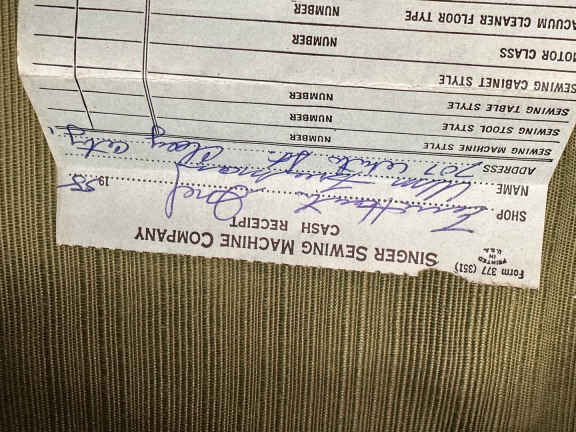 Form 377 (351)
PRINTED
IN
U.S.A.
SINGER SEWING MACHINE COMPANY
CASH RECEIPT
SHOP
19 58
NAME Wm
ADDRESS 707 St.
SEWING MACHINE STYLE NUMBER
SEWING STOOL STYLE NUMBER
SEWING TABLE STYLE NUMBER
SEWING CABINET STYLE
MOTOR CLASS NUMBER
ACUUM CLEANER FLOOR TYPE NUMBER